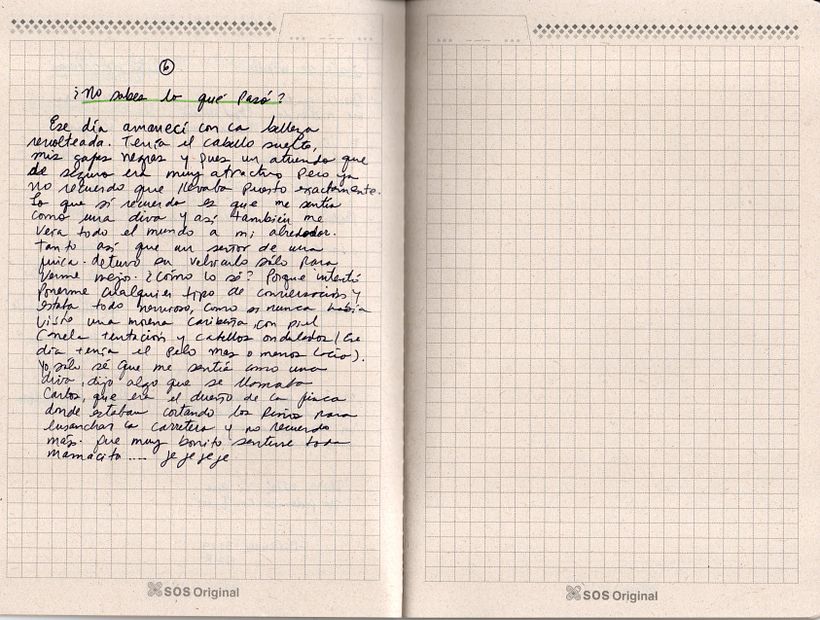 6
¿No sabes lo que pasó?
Ese día amanecí con la belleza
revolteada. Tenía el cabello suelto,
mis gafas negras y pues un atuendo que
de seguro era muy atractivo pero ya
no recuerdo que llevaba puesto exactamente.
Lo que sí recuerdo es que me sentía
como una diva y así también me
veía todo el mundo a mi alrededor.
Tanto así que un señor de una
finca. detuvo su vehículo sólo para
verme mejor. ¿Cómo lo sé? Porque intentó
ponerme cualquier tipo de conversación y
estaba todo nervioso, como si nunca había
visto una morena caribeña, con piel
canela tentación y cabellos ondulados (Ese
día tenía el pelo mas o menos locio).
Yo sólo sé que me sentía como una
diva, dijo algo que se llamaba
Carlos, que era el dueño de la finca
donde estaban cortando los pinos para
ensanchar la carretera y no recuerdo
más. Fue muy bonito sentirse toda
mamacita .... jejejeje
SOS Original
SOS Original